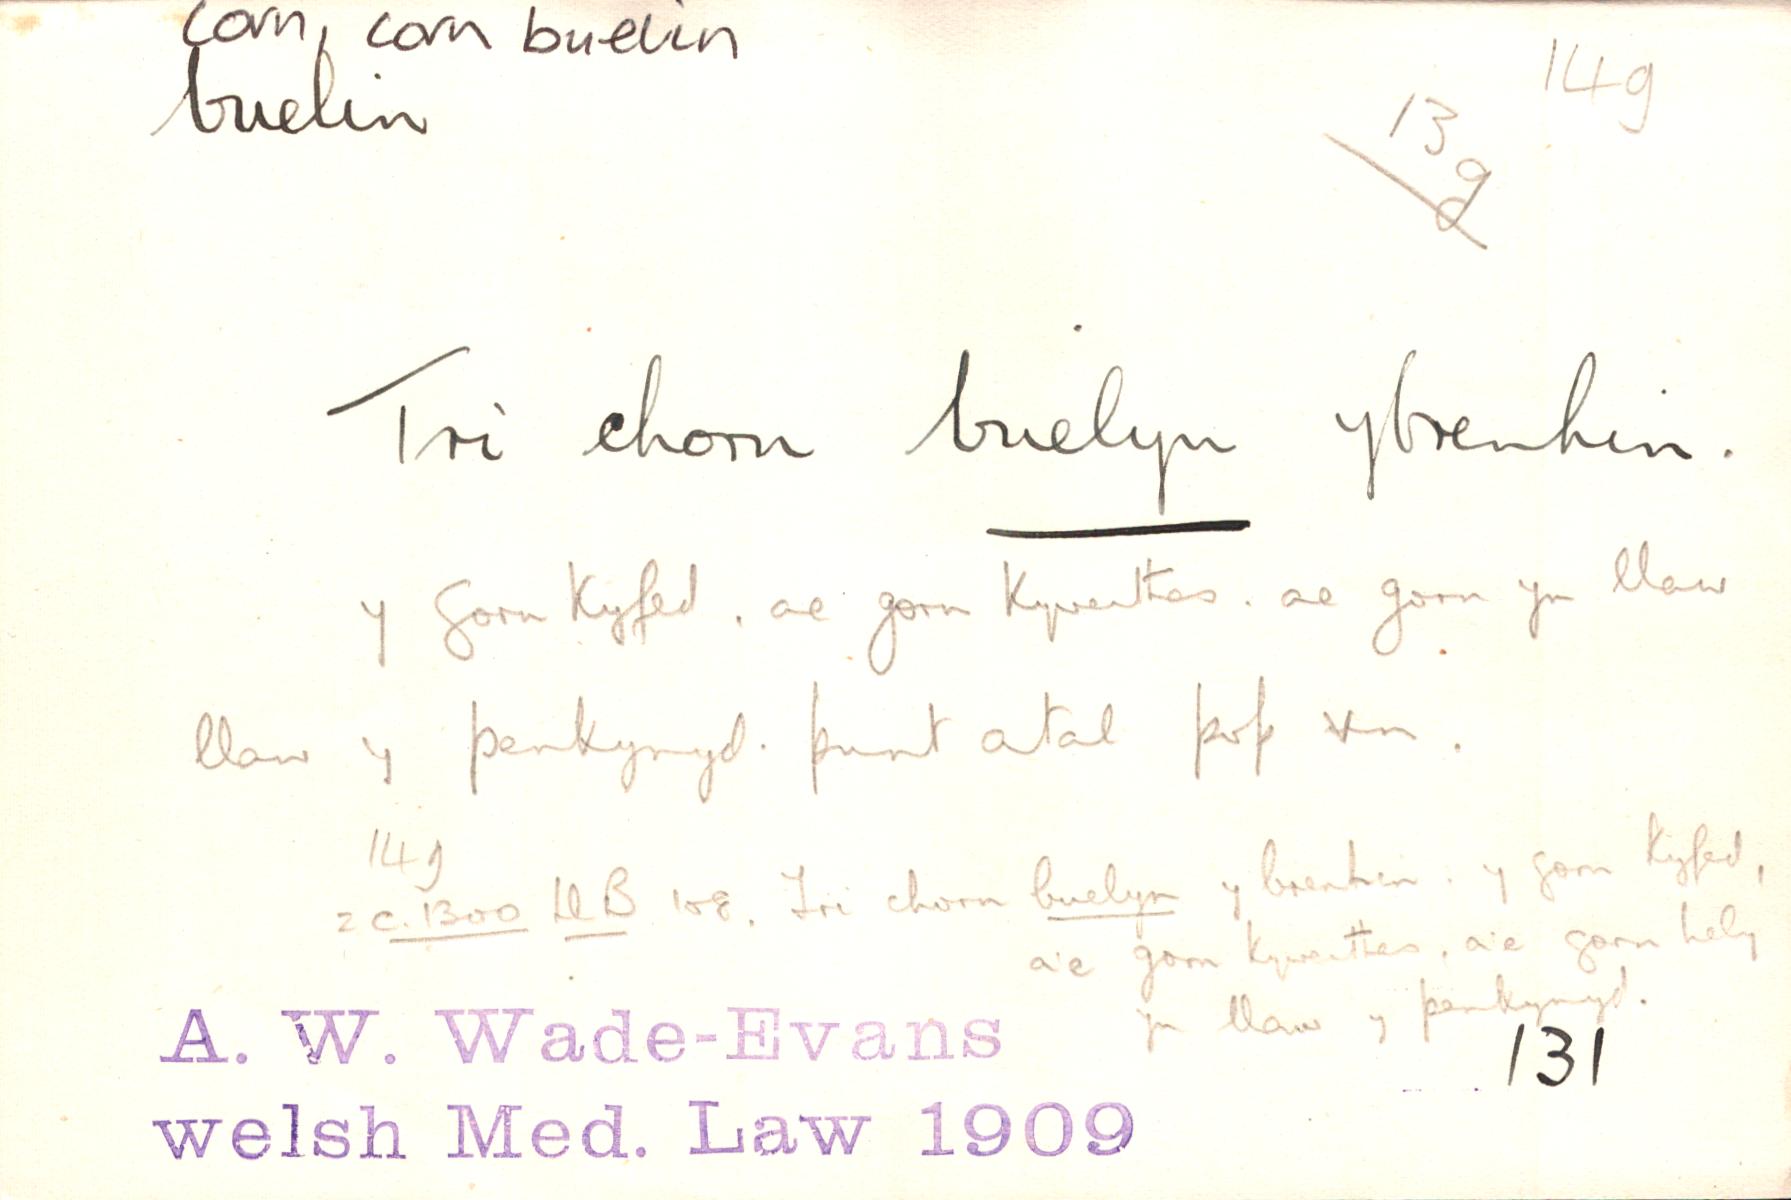 corn, corn buelin
buelin
14g
13g
Tri chorn buelyn ybrenhin.
y gorn Kyfed. ae gorn Kyweithas. ae gorn yn llaw
llaw y penkynyd. punt atal pop un.
14g
c. 1300 Ll B 108. Tri chorn buelyn y brenhin. y gorn kyfed,
a'e gorn kyweithas, a'e gorn hely
yn llaw y penkynyd.
A. W. Wade-Evans
131
welsh Med. Law 1909